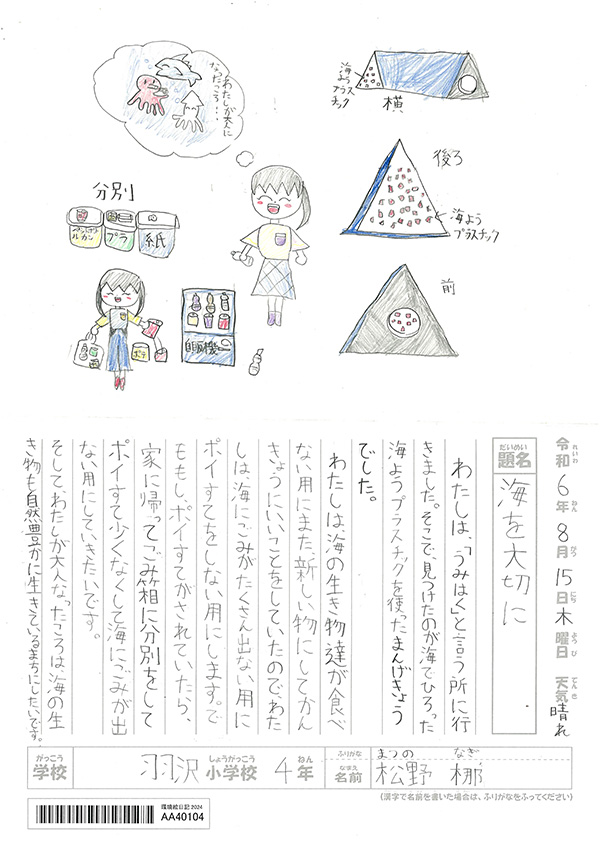 わたしが大人に
なったころ…
海よう
プラス
チック
横
後ろ
海よう
プラスチック
前
分別
ペットボト
ルカン
プラ
紙
ポテ
自販機
令和6年8月15日木曜日 天気晴れ
れいわ ねん がつ にち ようび てんき
だいめい
題名
海を大切に
わたしは、「うみはく」と言う所に行
きました。そこで、見つけたのが海でひろった
海ようプラスチックを使ったまんげきょう
でした。
わたしは、海の生き物達が食べ
ない用にまた、新しい物にしてかん
きょうにいいことをしていたので、わた
しは、海にごみがたくさん出ない用に
ポイすてをしない用にします。で
ももし、ポイすてがされていたら、
家に帰ってごみ箱に分別をして
ポイすて少くなくして海にごみが出
ない用にしていきたいです。
そして、わたしが大人なったころは、海の生
き物も自然豊かに生きているまちにしたいです。
がっこう
学校
羽沢小学校 4年
しょうがっこう ねん
ふりがな
まつの なぎ
なまえ
名前
松野 梛
(漢字で名前を書いた場合は、ふりがなをふってください)
環境絵日記2024
AA40104